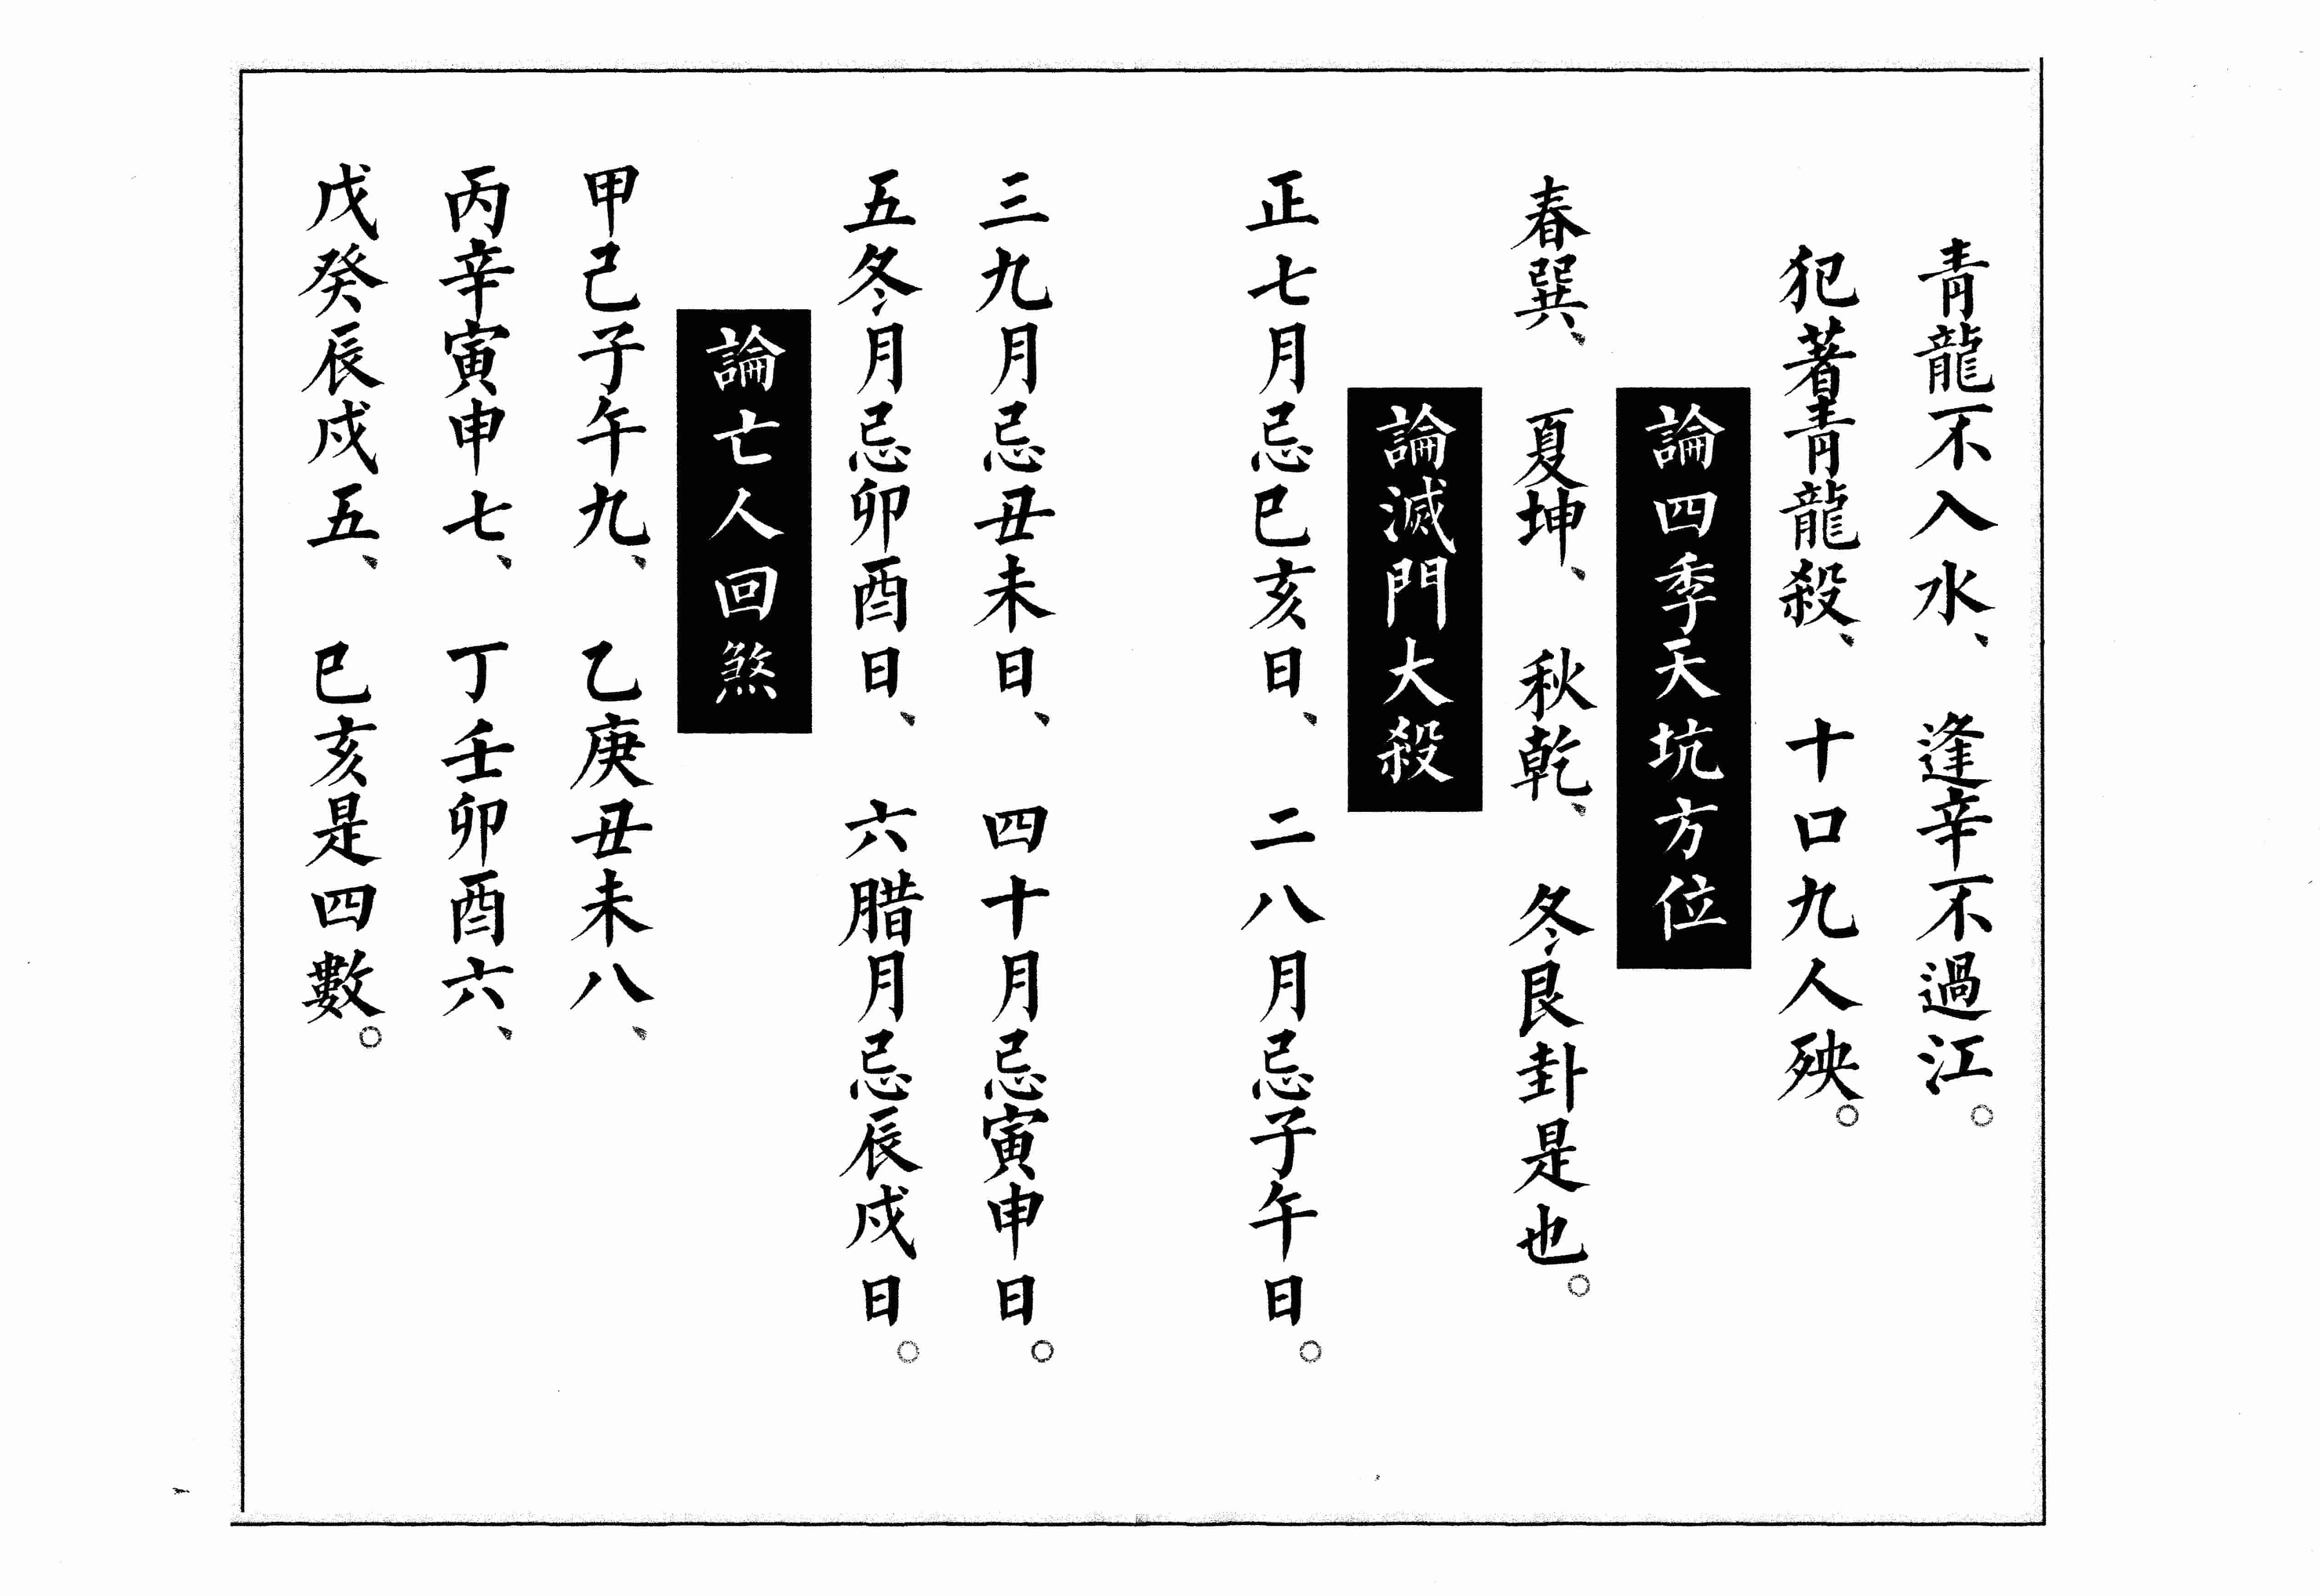 青龍不入水、逢辛不過江。
犯著青龍殺、十口九人殃。
論四季天坑方位
春巽、夏坤、秋乾、冬艮卦是也。
論滅門大殺
正七月忌巳亥日、二八月忌子午日。
三九月忌丑未日、四十月忌寅申日。
五冬月忌卯酉日、六腊月忌辰戌日。
論亡人回煞
甲己子午九、乙庚丑未八、
丙辛寅申七、丁壬卯酉六、
戊癸辰戌五、巳亥是四數。